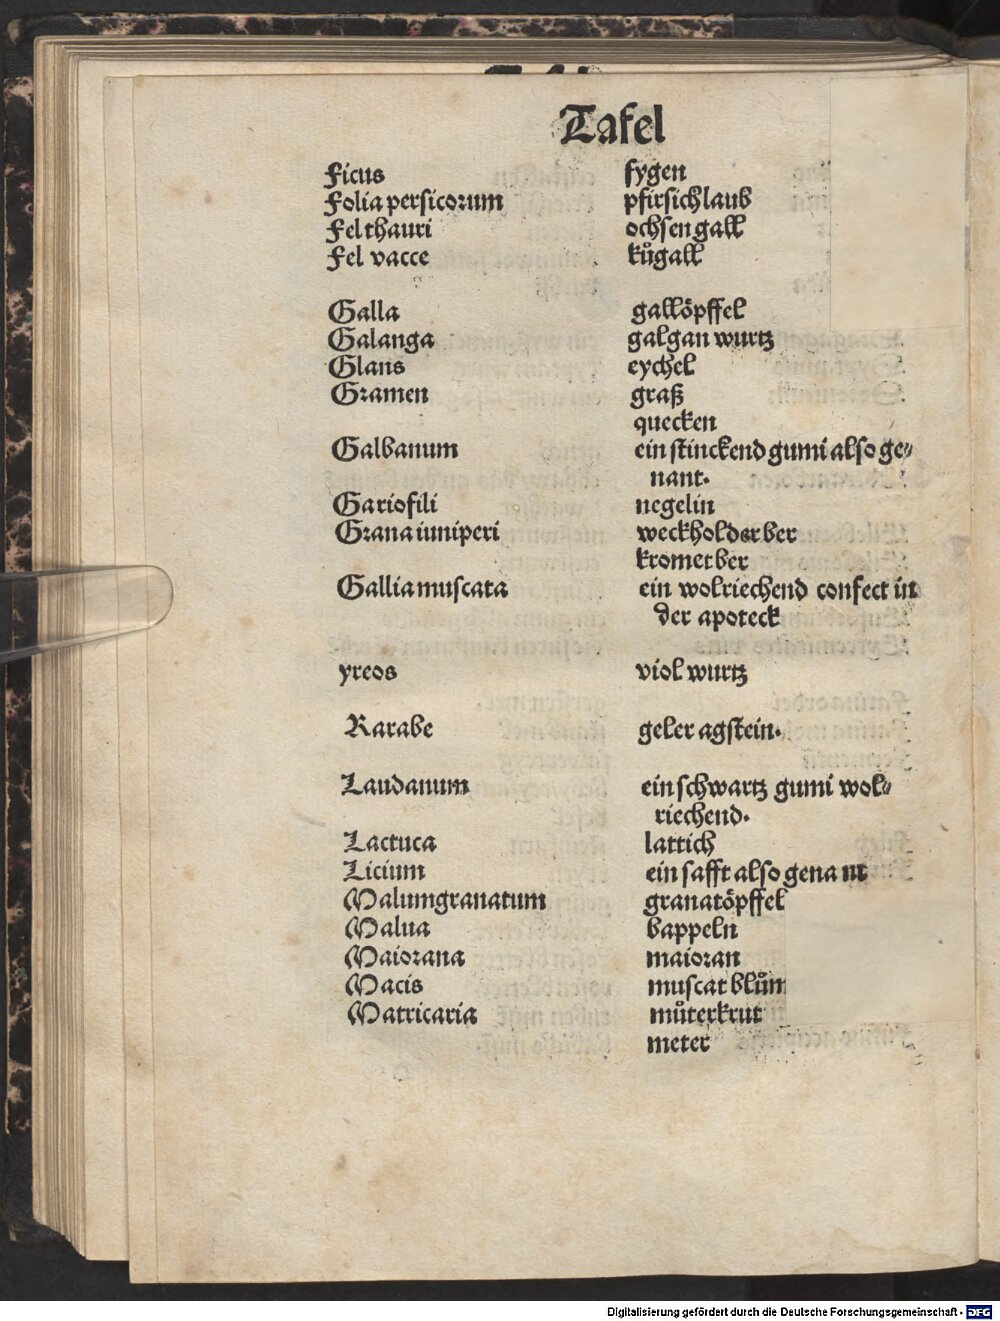 Tafel
Ficus fygen
Folia persicorum pfirsichlaub
Fel thauri ochsen gall
Fel vacce kůgall
Galla gallöpffel
Galanga galgan wurtz
Glans eychel
Gramen graß
quecken
Galbanum ein stinckend gumi also ge⸗
nant.
Gariofili negelin
Grana iuniperi weckholder ber
krometber
Gallia muscata ein wolriechend confect in
der apoteck
yreos viol wurtz
Karabe geler agstein.
Laudanum ein schwartz gumi wol⸗
riechend.
Lactuca lattich
Licium ein safft also genant
Malumgranatum granatöpffel
Malua bappeln
Maiorana maioran
Macis muscat blům
Matricaria můterkrut
meter
Digitalisierung gefördert durch die Deutsche Forschungsgemeinschaft - DFG